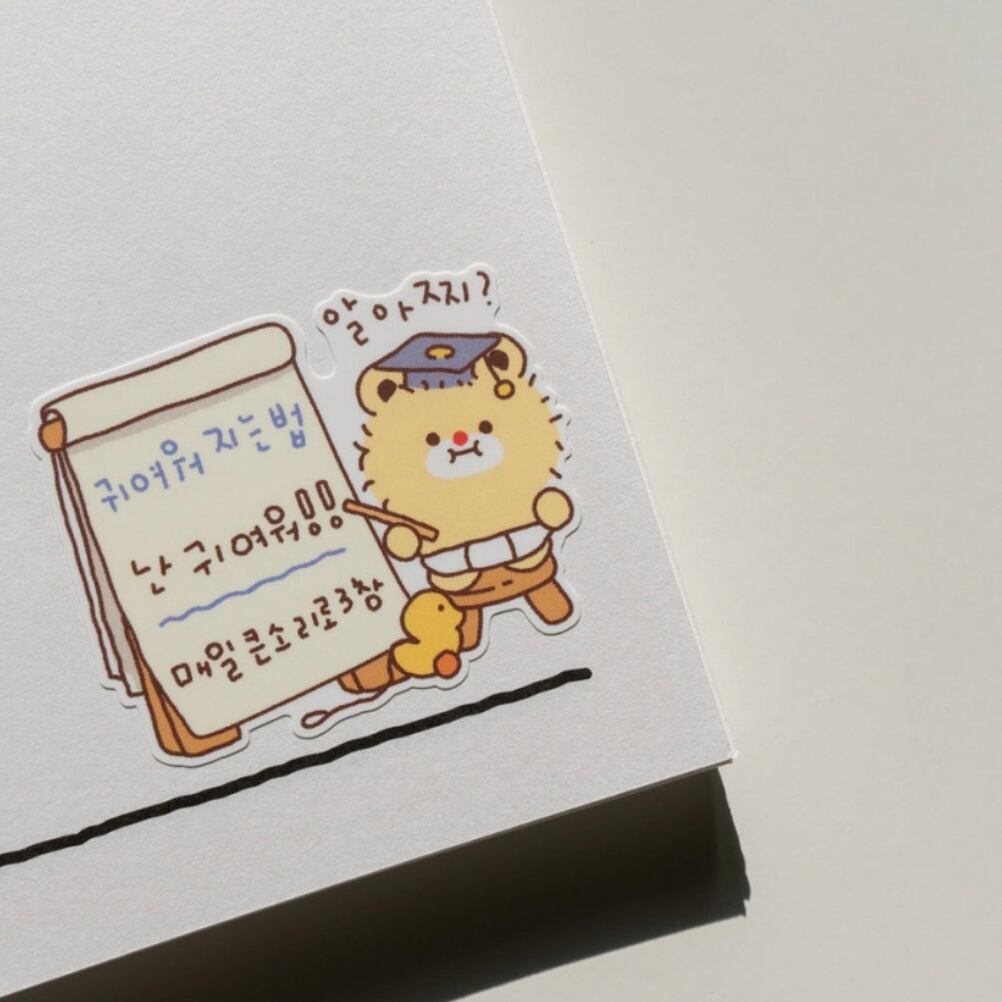 알아찌?
귀여워지는법
난 귀여워!!
매일 큰소리로 3창